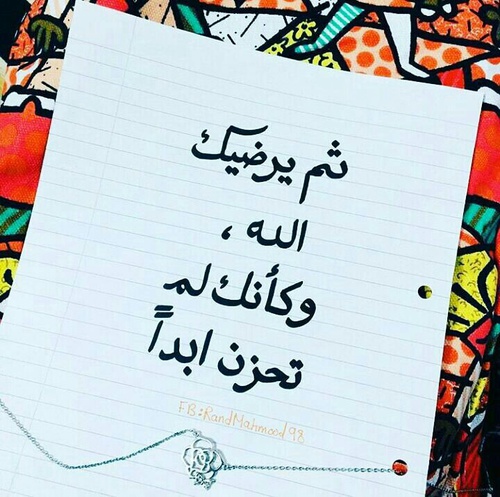 ثم يرضيك
الله ،
وكأنك لم
تحزن ابداً
FB:RandMahmood98